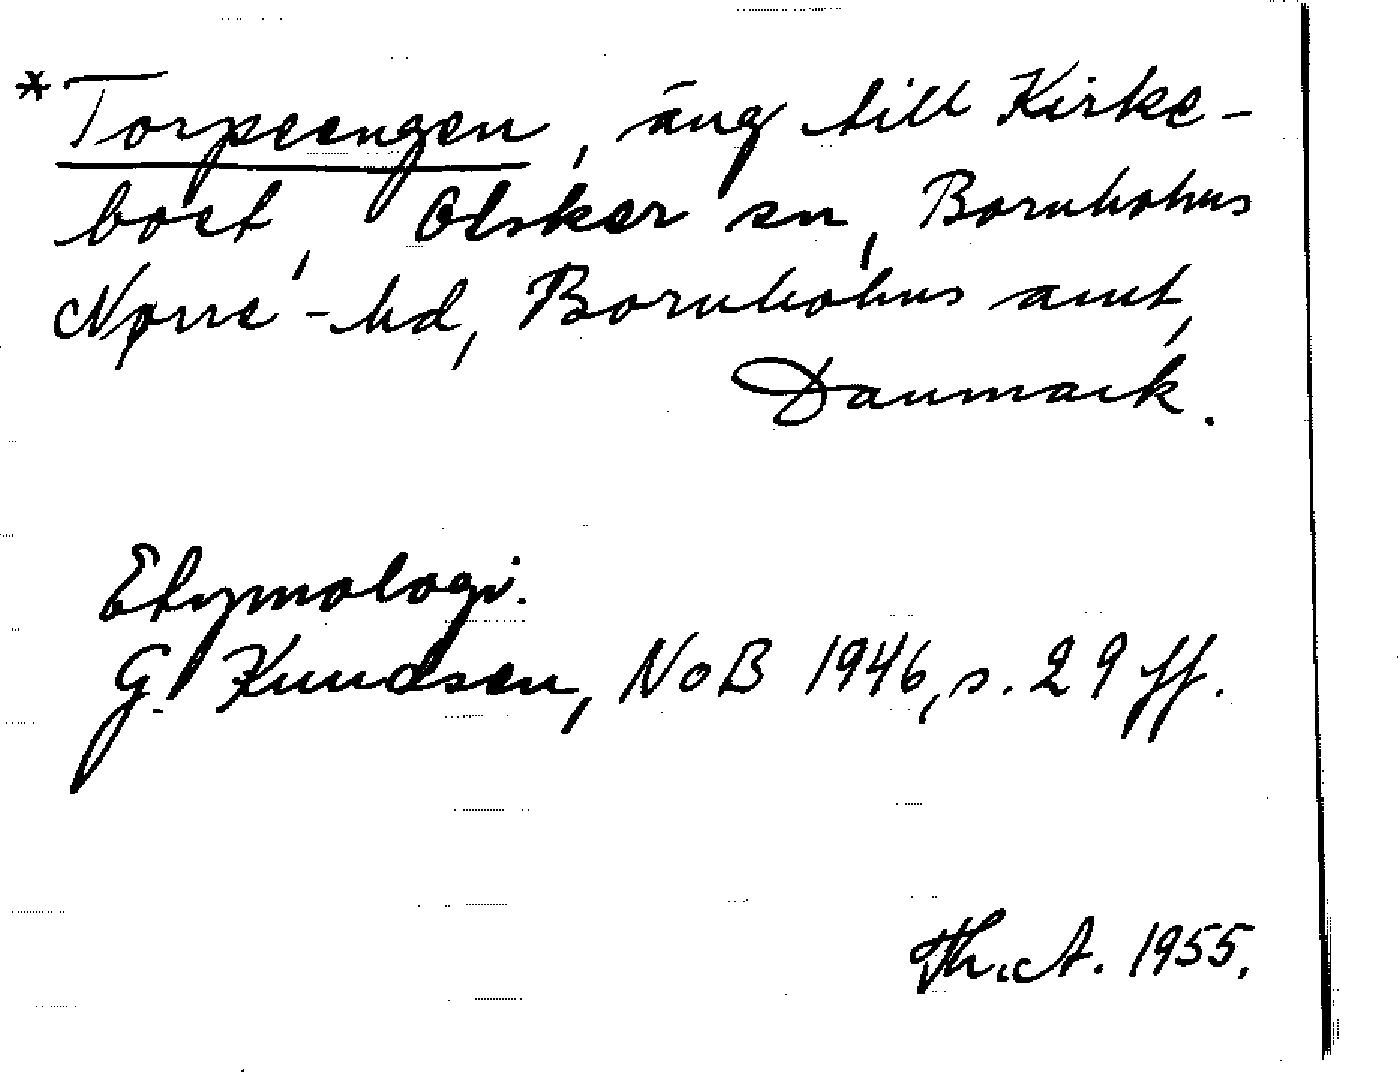 *Torpeengen, äng till Kirke-
boet, Olsker sn, Bornholms
Nørre-hd, Bornholms amt,
Danmark.
Etymologi.
G. Knudsen, NoB 1946, s. 29 ff.
Th. A. 1955.